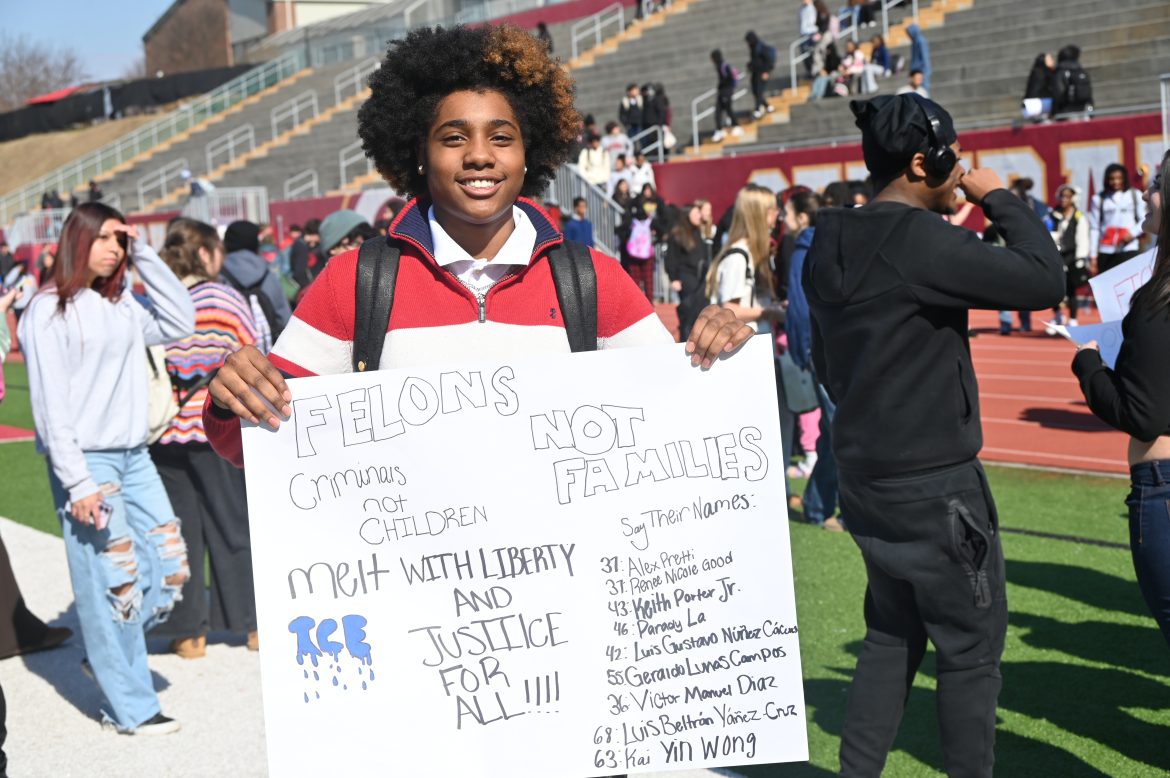 FELONS
NOT
FAMILIES
Criminals
not
CHILDREN
melt
ICE
WITH LIBERTY
AND
JUSTIICE
FOR
ALL !!!!
Say Their Names:
37: Alex Pretti
37: Renee Nicole Good
43: Keith Porter Jr.
46: Parady La
42: Luis Gustavo Núñez Cáceres
55: Geraldo Lunas Campos
36: Victor Manuel Diaz
68: Luis Beltrán Yáñez-Cruz
63: Kai Yin Wong